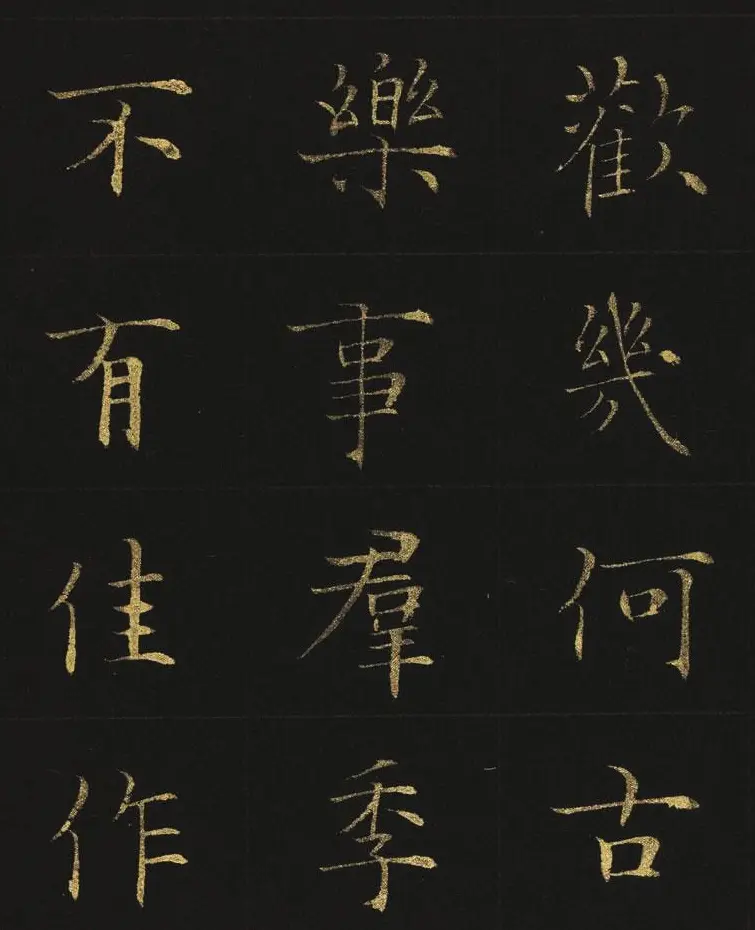 歡幾何古
樂事羣季
不有佳作